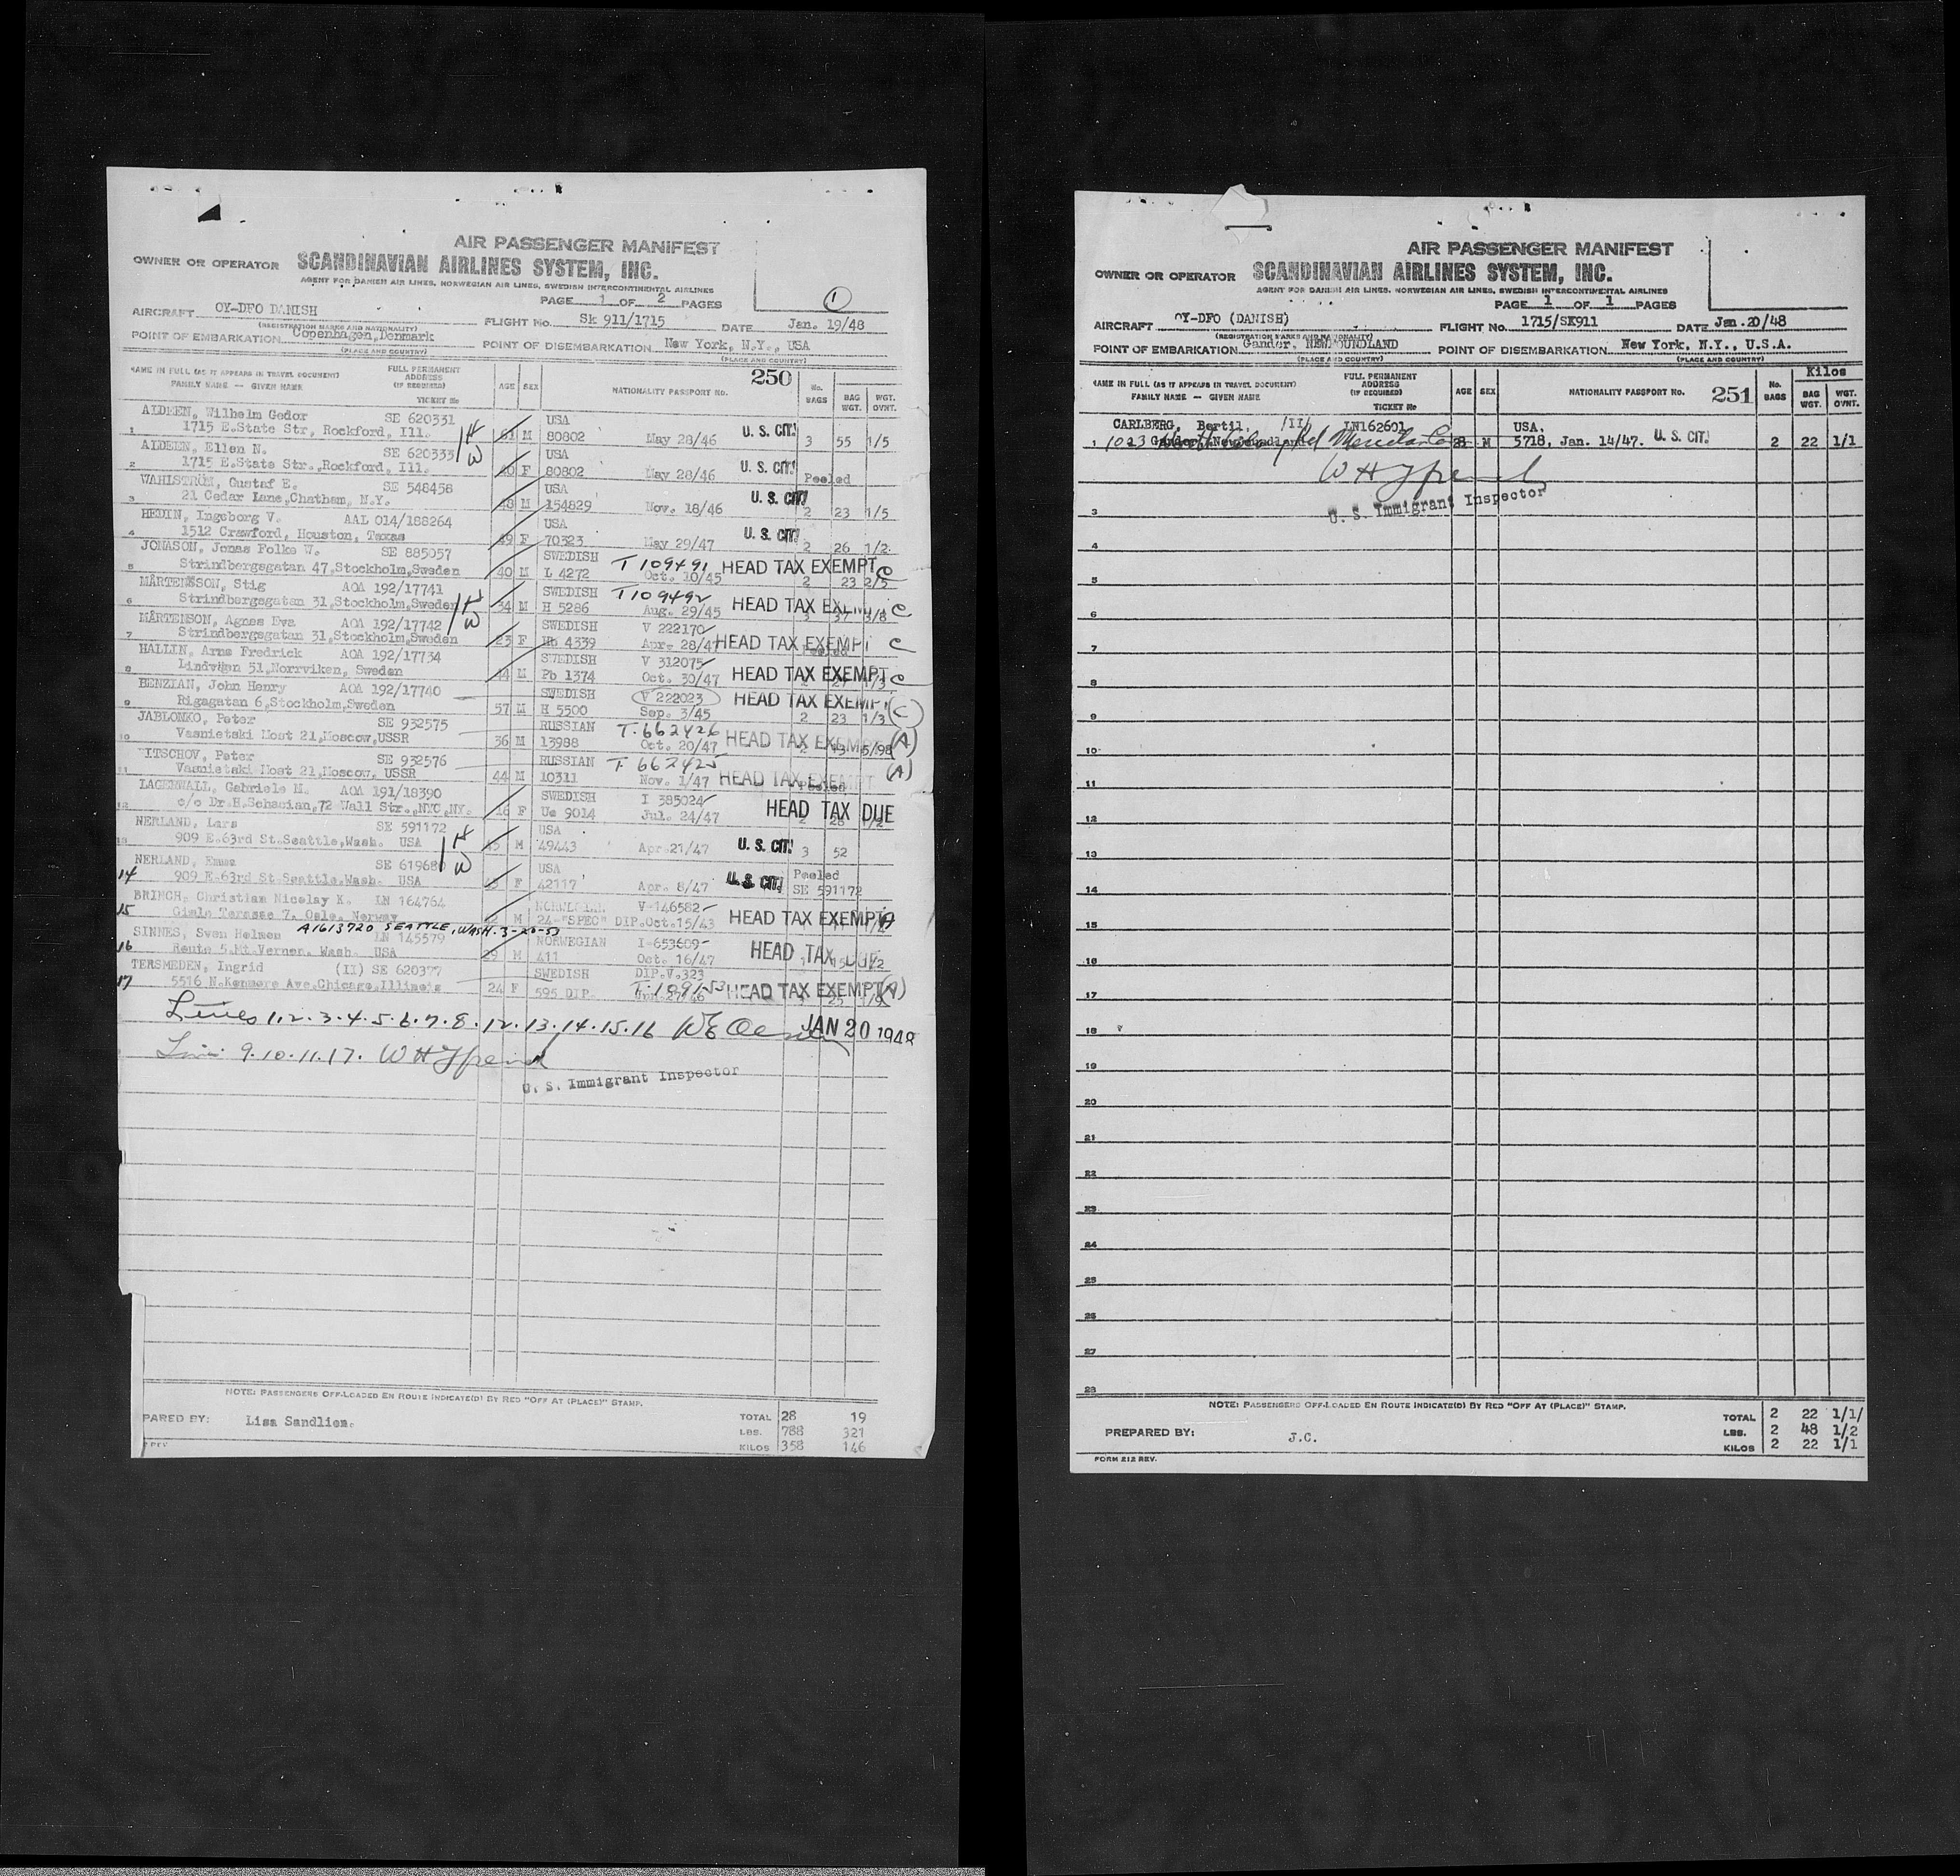 AIR PASSENGER MANIFEST
OWNER OR OPERATOR SCANDINAVIAN AIRLINES SYSTEM, INC.
AGENT FOR DANISH AIR LINES, NORWEGIAN AIR LINES, SWEDISH INTERCONTINENTAL AIRLINES
PAGE 1 OF 2 PAGES
1
AIRCRAFT OY-DFO DANISH FLIGHT No. Sk 911/1715 DATE Jan. 19/48
(REGISTRATION MARKS AND NATIONALITY)
POINT OF EMBARKATION Copenhagen, Denmark POINT OF DISEMBARKATION New York, N.Y., USA
(PLACE AND COUNTRY) (PLACE AND COUNTRY)
NAME IN FULL (AS IT APPEARS IN TRAVEL DOCUMENT) FULL PERMANENT ADDRESS (IF REQUIRED) AGE SEX NATIONALITY PASSPORT No. 250 No. BAGS BAG WGT. WGT. OVNT.
FAMILY NAME — GIVEN NAME
TICKET No
ALDEEN, Wilhelm Gedor SE 620331 USA
1 1715 E.State Str, Rockford, Ill. 61 M 80802 May 28/46 U. S. CIT. 3 55 1/5
H
W
ALDEEN, Ellen N. SE 620333 USA
2 1715 E.State Str., Rockford, Ill. 60 F 80802 May 28/46 U. S. CIT. Peeled
WAHLSTRÖM, Gustaf E. SE 548458 USA
3 21 Cedar Lane, Chatham, N.Y. 48 M 154829 Nov. 18/46 U. S. CIT. 2 23 1/5
HEDIN, Ingeborg V. AAL 014/188264 USA
4 1512 Crawford, Houston, Texas 49 F 70323 May 29/47 U. S. CIT. 2 26 1/2
JONASON, Jonas Folke W. SE 885057 SWEDISH T 109491
5 Strindbergsgatan 47, Stockholm, Sweden 40 M L 4272 Oct. 10/45 HEAD TAX EXEMPT C 2 23 2/5
MÅRTENSSON, Stig AOA 192/17741 SWEDISH T109492
6 Strindbergsgatan 31, Stockholm, Sweden 34 M H 5286 Aug. 29/45 HEAD TAX EXEMPT C 3 37 3/8
H
W
MÅRTENSON, Agnes Eva AOA 192/17742 SWEDISH V 222170
7 Strindbergsgatan 31, Stockholm, Sweden 23 F Hb 4339 Apr. 28/47 HEAD TAX EXEMPT C
HALLIN, Arne Fredrick AOA 192/17734 SWEDISH V 312075
8 Lindvägen 51, Norrviken, Sweden 44 M Pb 1374 Oct. 30/47 HEAD TAX EXEMPT C
BENZIAN, John Henry AOA 192/17740 SWEDISH V 222023
9 Rigagatan 6, Stockholm, Sweden 57 M H 5500 Sep. 3/45 HEAD TAX EXEMPT (C) 2 23 1/3
JABLONKO, Peter SE 932575 RUSSIAN T. 662426
10 Vasnietski Most 21, Moscow, USSR 36 M 13988 Oct. 20/47 HEAD TAX EXEMPT (A) 5/98
TITSCHOV, Peter SE 932576 RUSSIAN T 662425
11 Vasnietski Most 21, Moscow, USSR 44 M 10311 Nov. 1/47 HEAD TAX EXEMPT (A) Peeled
LAGERWALL, Gabriele M. AOA 191/18390 SWEDISH I 385024
12 c/o Dr.H.Schacian, 72 Wall Str., NYC, NY. 16 F Ue 9014 Jul. 24/47 HEAD TAX DUE
NERLAND, Lars SE 591172 USA
13 909 E.63rd St. Seattle, Wash. USA M 49443 Apr. 21/47 U. S. CIT. 3 52
H
W
NERLAND, Emma SE 619680 USA Peeled
14 909 E.63rd St. Seattle, Wash. USA F 42117 Apr. 8/47 U. S. CIT. SE 591172
BRINCH, Christian Nicolay K. LN 164764 NORWEGIAN V-146582
15 Gimle Terasse 7. Oslo. Norway M 24-"SPEC" DIP. Oct. 15/43 HEAD TAX EXEMPT A
A1613720 SEATTLE, WASH. 3-20-53
SINNES, Sven Helmen LN 145579 NORWEGIAN I-653609
16 Route 5. Mt. Vernon, Wash. USA 29 M 411 Oct. 16/47 HEAD TAX DUE
TERSMEDEN, Ingrid (II) SE 620377 SWEDISH DIP.V.323
17 5516 N.Kenmore Ave. Chicago, Illinois 24 F 595 DIP. T. 109153 HEAD TAX EXEMPT (A)
Lines 1.2.3.4.5.6.7.8.12.13.14.15.16 JAN 20 1948
Line 9.10.11.17.
U. S. Immigrant Inspector
NOTE: PASSENGERS OFF-LOADED EN ROUTE INDICATE(D) BY RED "OFF AT (PLACE)" STAMP.
PARED BY: Lisa Sandlien. TOTAL 28 19
LBS. 788 321
KILOS 358 146
AIR PASSENGER MANIFEST
OWNER OR OPERATOR SCANDINAVIAN AIRLINES SYSTEM, INC.
AGENT FOR DANISH AIR LINES, NORWEGIAN AIR LINES, SWEDISH INTERCONTINENTAL AIRLINES
PAGE 1 OF 1 PAGES
AIRCRAFT OY-DFO (DANISH) FLIGHT No. 1715/SK911 DATE Jan. 20/48
(REGISTRATION MARKS AND NATIONALITY)
POINT OF EMBARKATION Gander, NEWFOUNDLAND POINT OF DISEMBARKATION New York, N.Y., U.S.A.
(PLACE AND COUNTRY) (PLACE AND COUNTRY)
Kilos
NAME IN FULL (AS IT APPEARS IN TRAVEL DOCUMENT) FULL PERMANENT ADDRESS (IF REQUIRED) AGE SEX NATIONALITY PASSPORT No. 251 No. BAGS BAG WGT. WGT. OVNT.
FAMILY NAME — GIVEN NAME
TICKET No
CARLBERG, Bertil. /II/ LN162601 USA.
1 1023 Gander, Newfoundland M 5718, Jan. 14/47. U. S. CIT. 2 22 1/1
U. S. Immigrant Inspector
3
4
5
6
7
8
9
10
11
12
13
14
15
16
17
18
19
20
21
22
23
24
25
26
27
28
NOTE: PASSENGERS OFF-LOADED EN ROUTE INDICATE(D) BY RED "OFF AT (PLACE)" STAMP.
TOTAL 2 22 1/1/
PREPARED BY: J.C. LBS. 2 48 1/2
KILOS 2 22 1/1
FORM 212 REV.